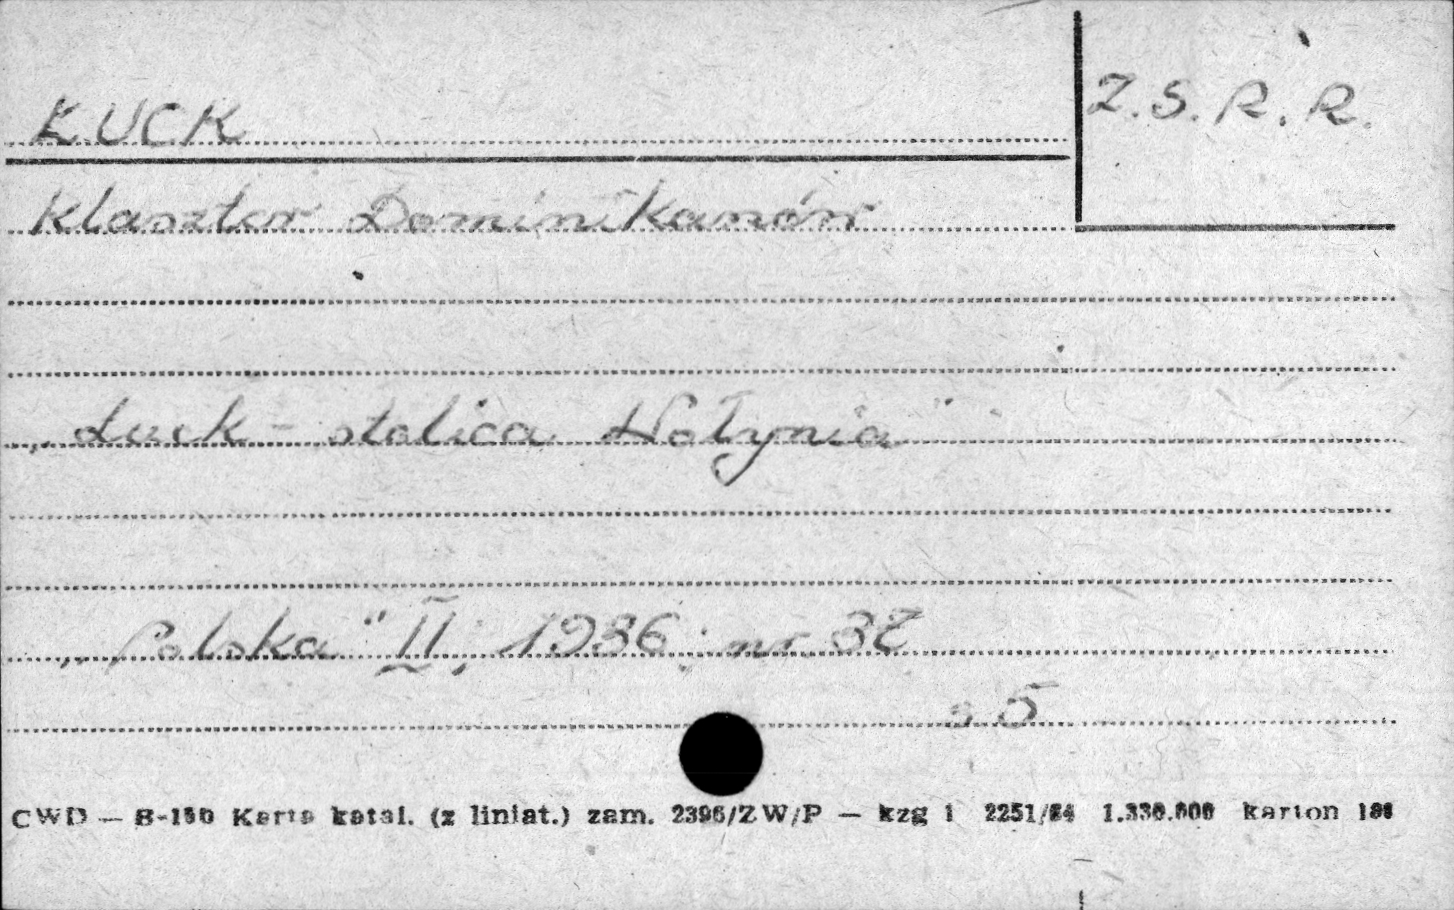 ŁUCK
Z.S.R.R.
Klasztor Dominikanów
„Łuck - stolica Wołynia"
„Polska" II, 1936; nr. 37
s 5
CWD — B-150 Karta katal. (z liniat.) zam. 2396/ZW/P — kzg 1 2251/84 1.330.000 karton